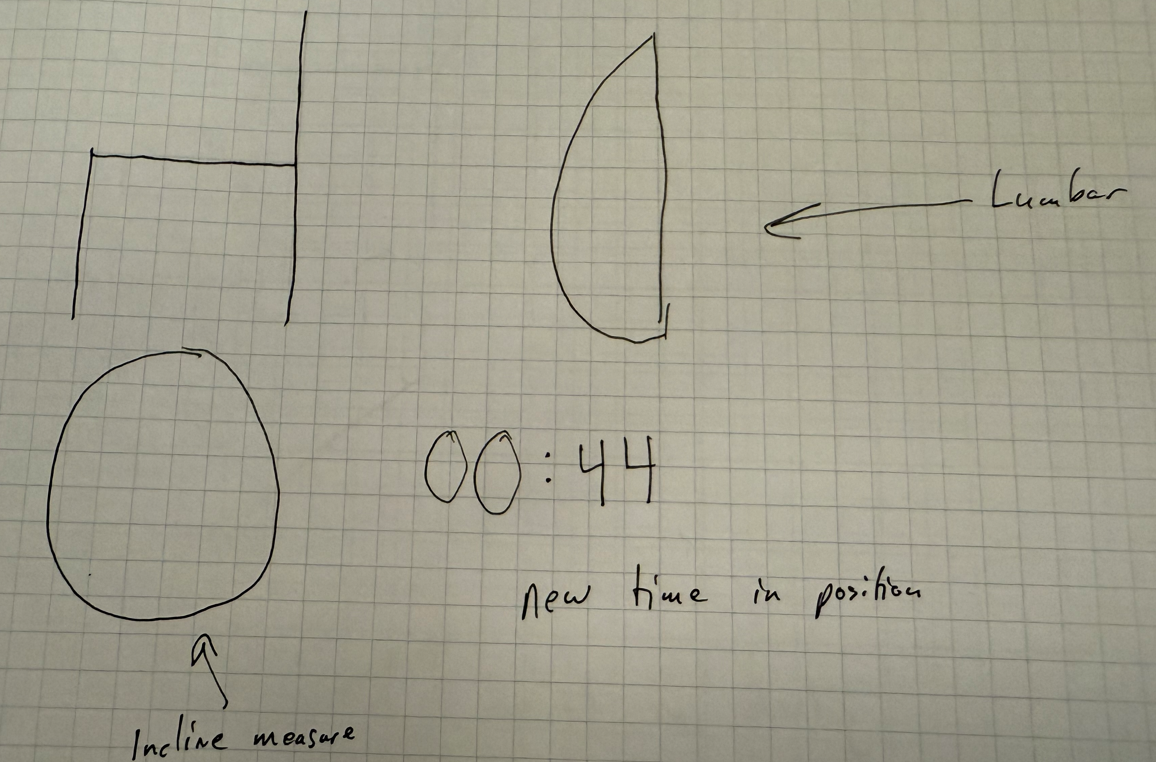 Lumbar
00:44
new time in position
Incline measure